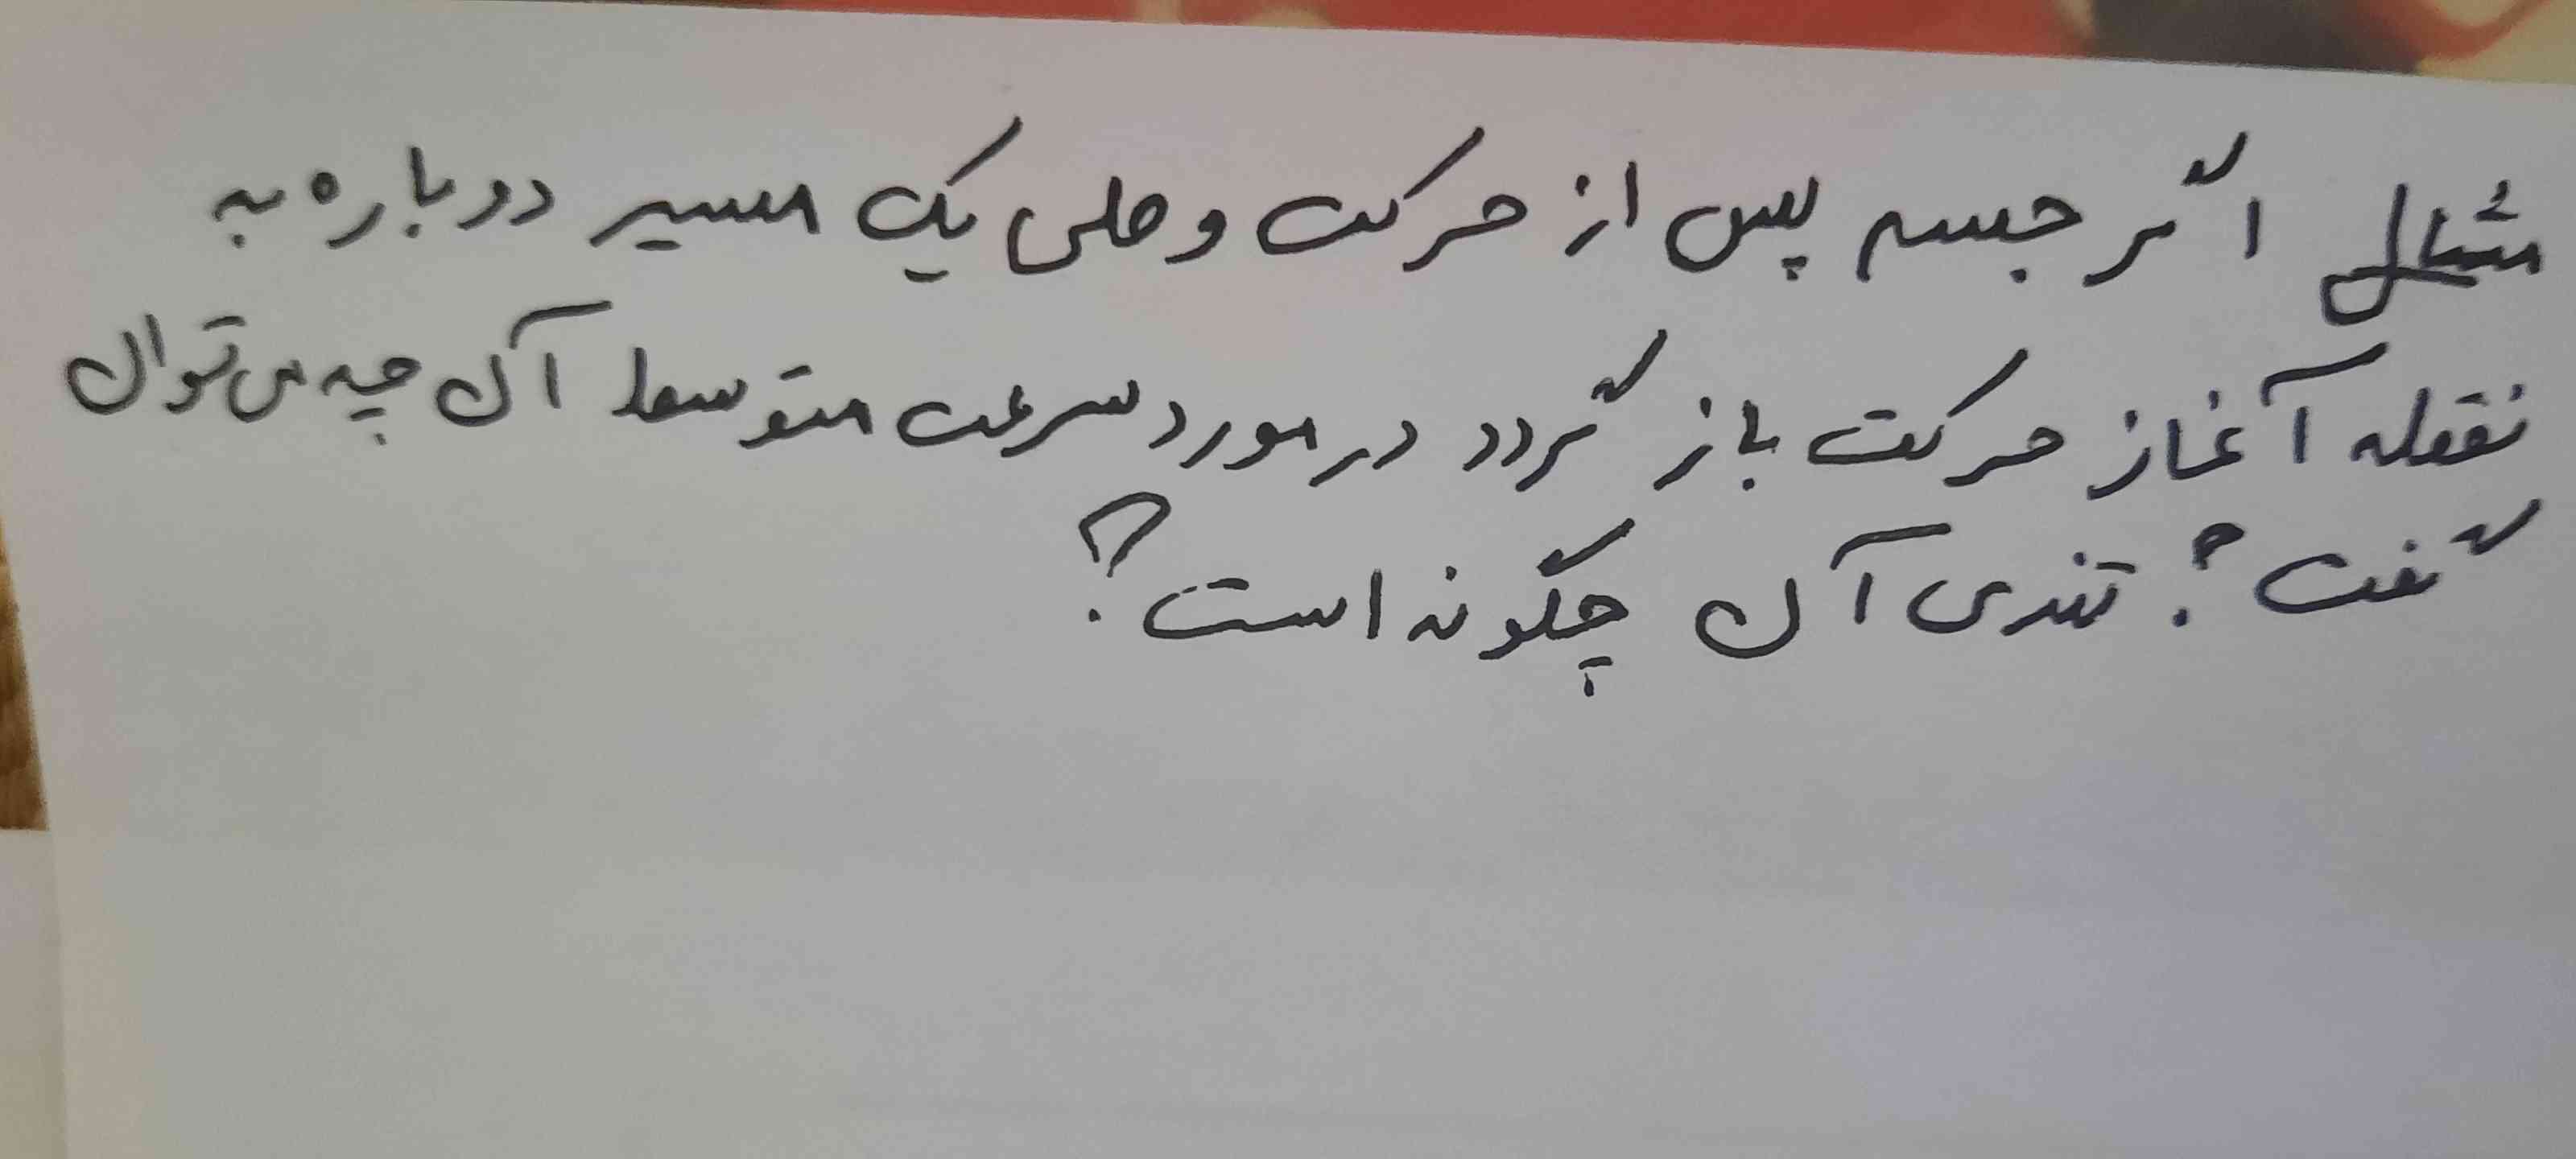 مثال اگر جسم پس از حرکت و طی یک مسیر دوباره به
نقطه آغاز حرکت باز گردد در مورد سرعت متوسط آن چه می توان
گفت؟ تندی آن چگونه است؟